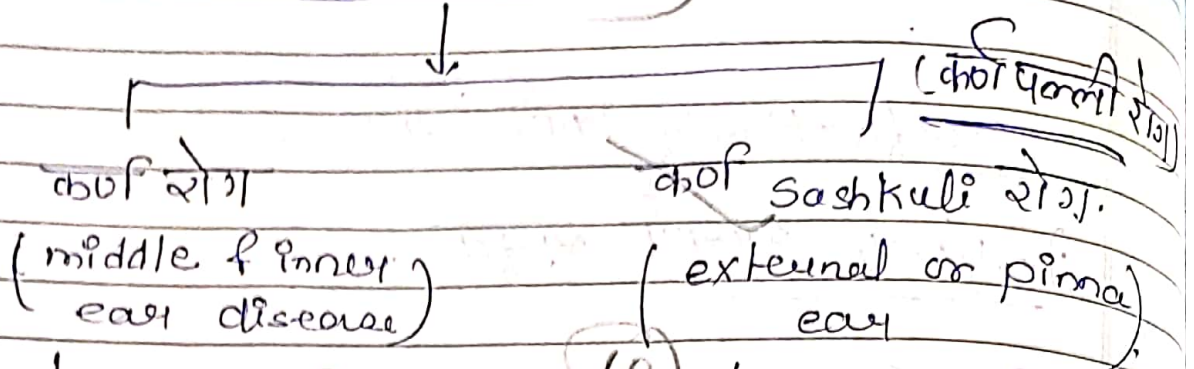 (कर्ण पल्ली रोग)
कर्ण रोग
कर्ण Sashkuli रोग.
(middle & inner ear disease)
(external or pinna ear)